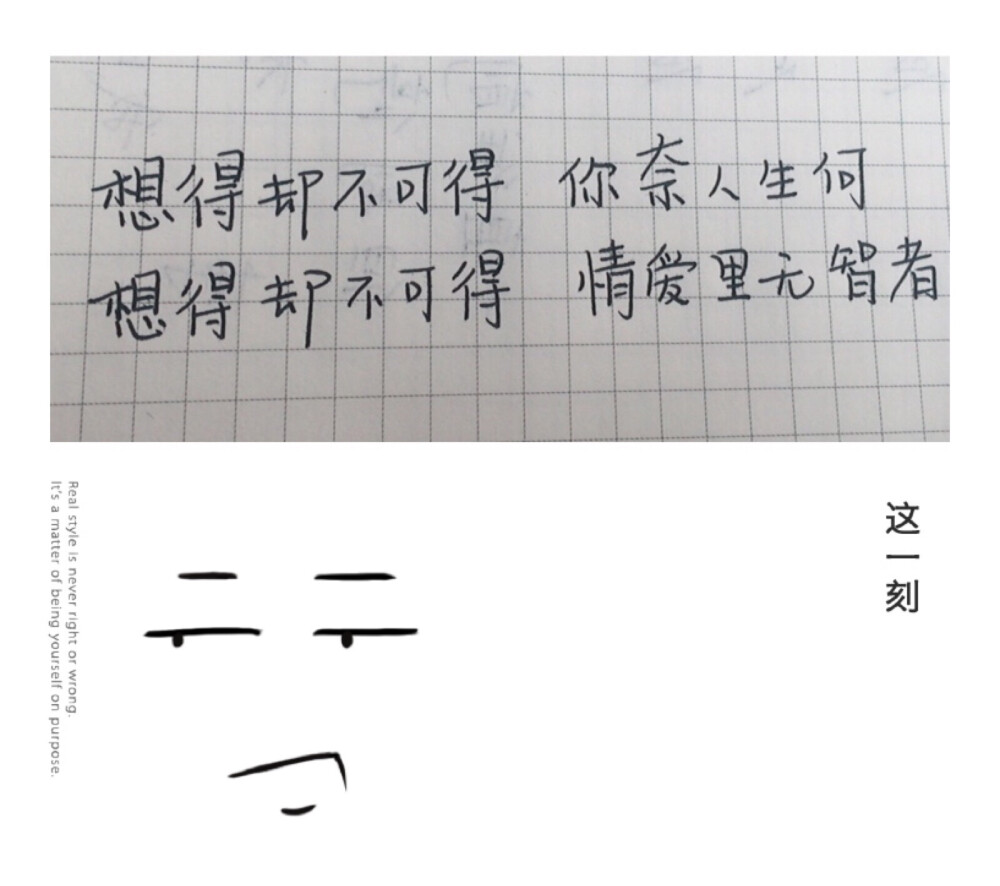 想得却不可得 你奈人生何
想得却不可得 情爱里无智者
这一刻
Real style is never right or wrong.
It's a matter of being yourself on purpose.